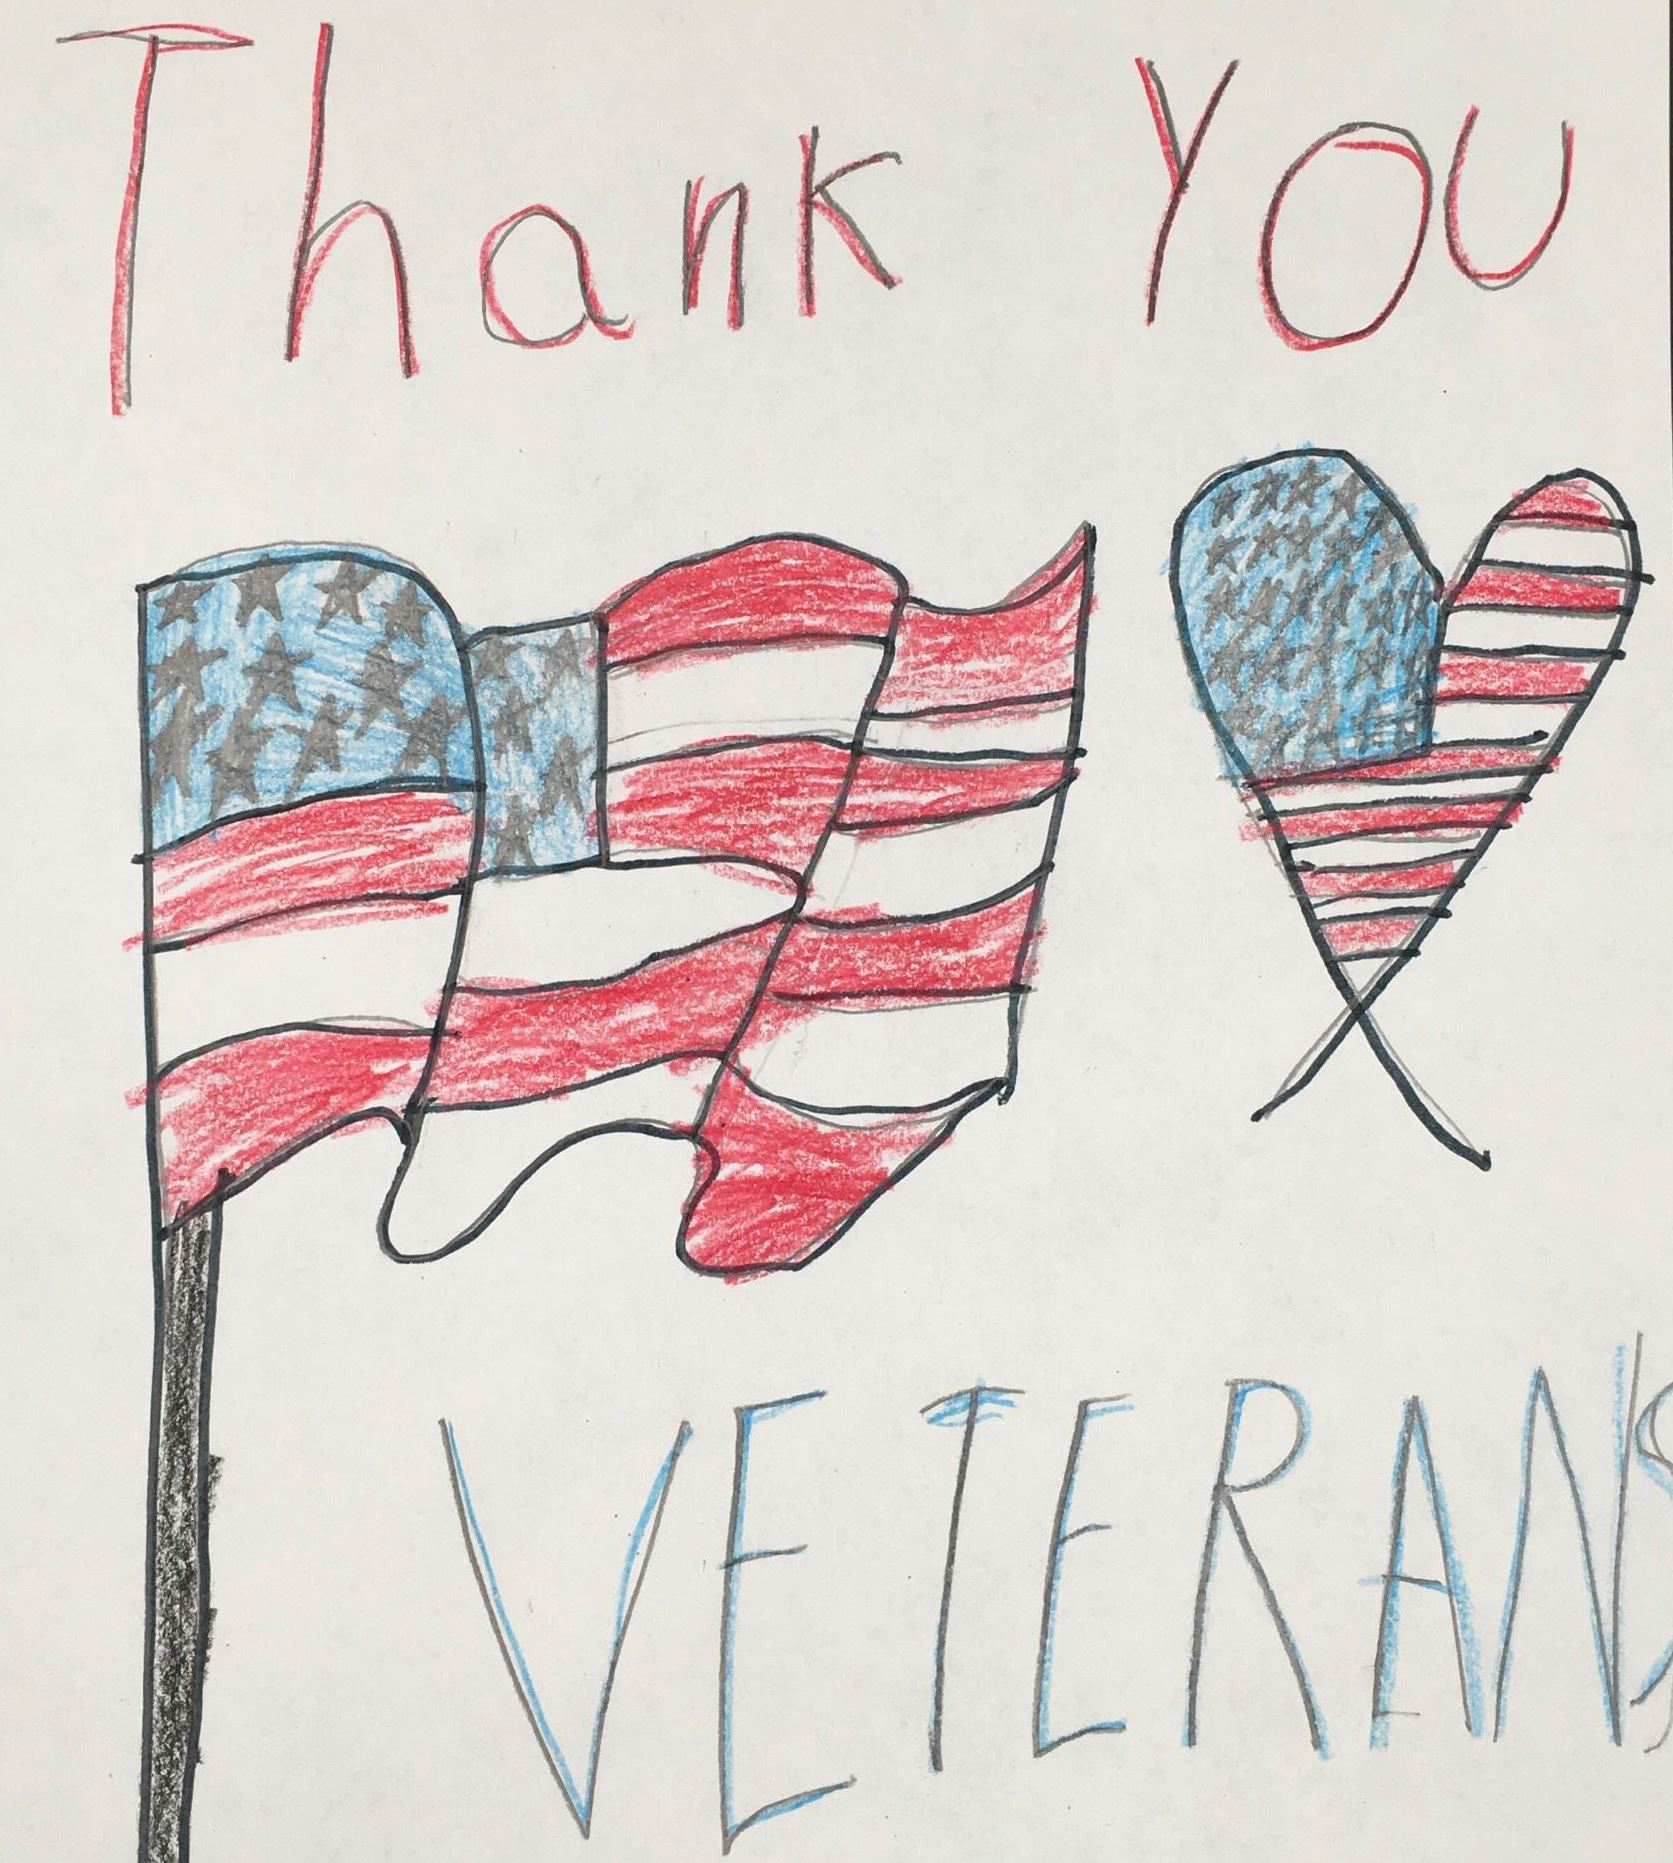 Thank You
VETERANS